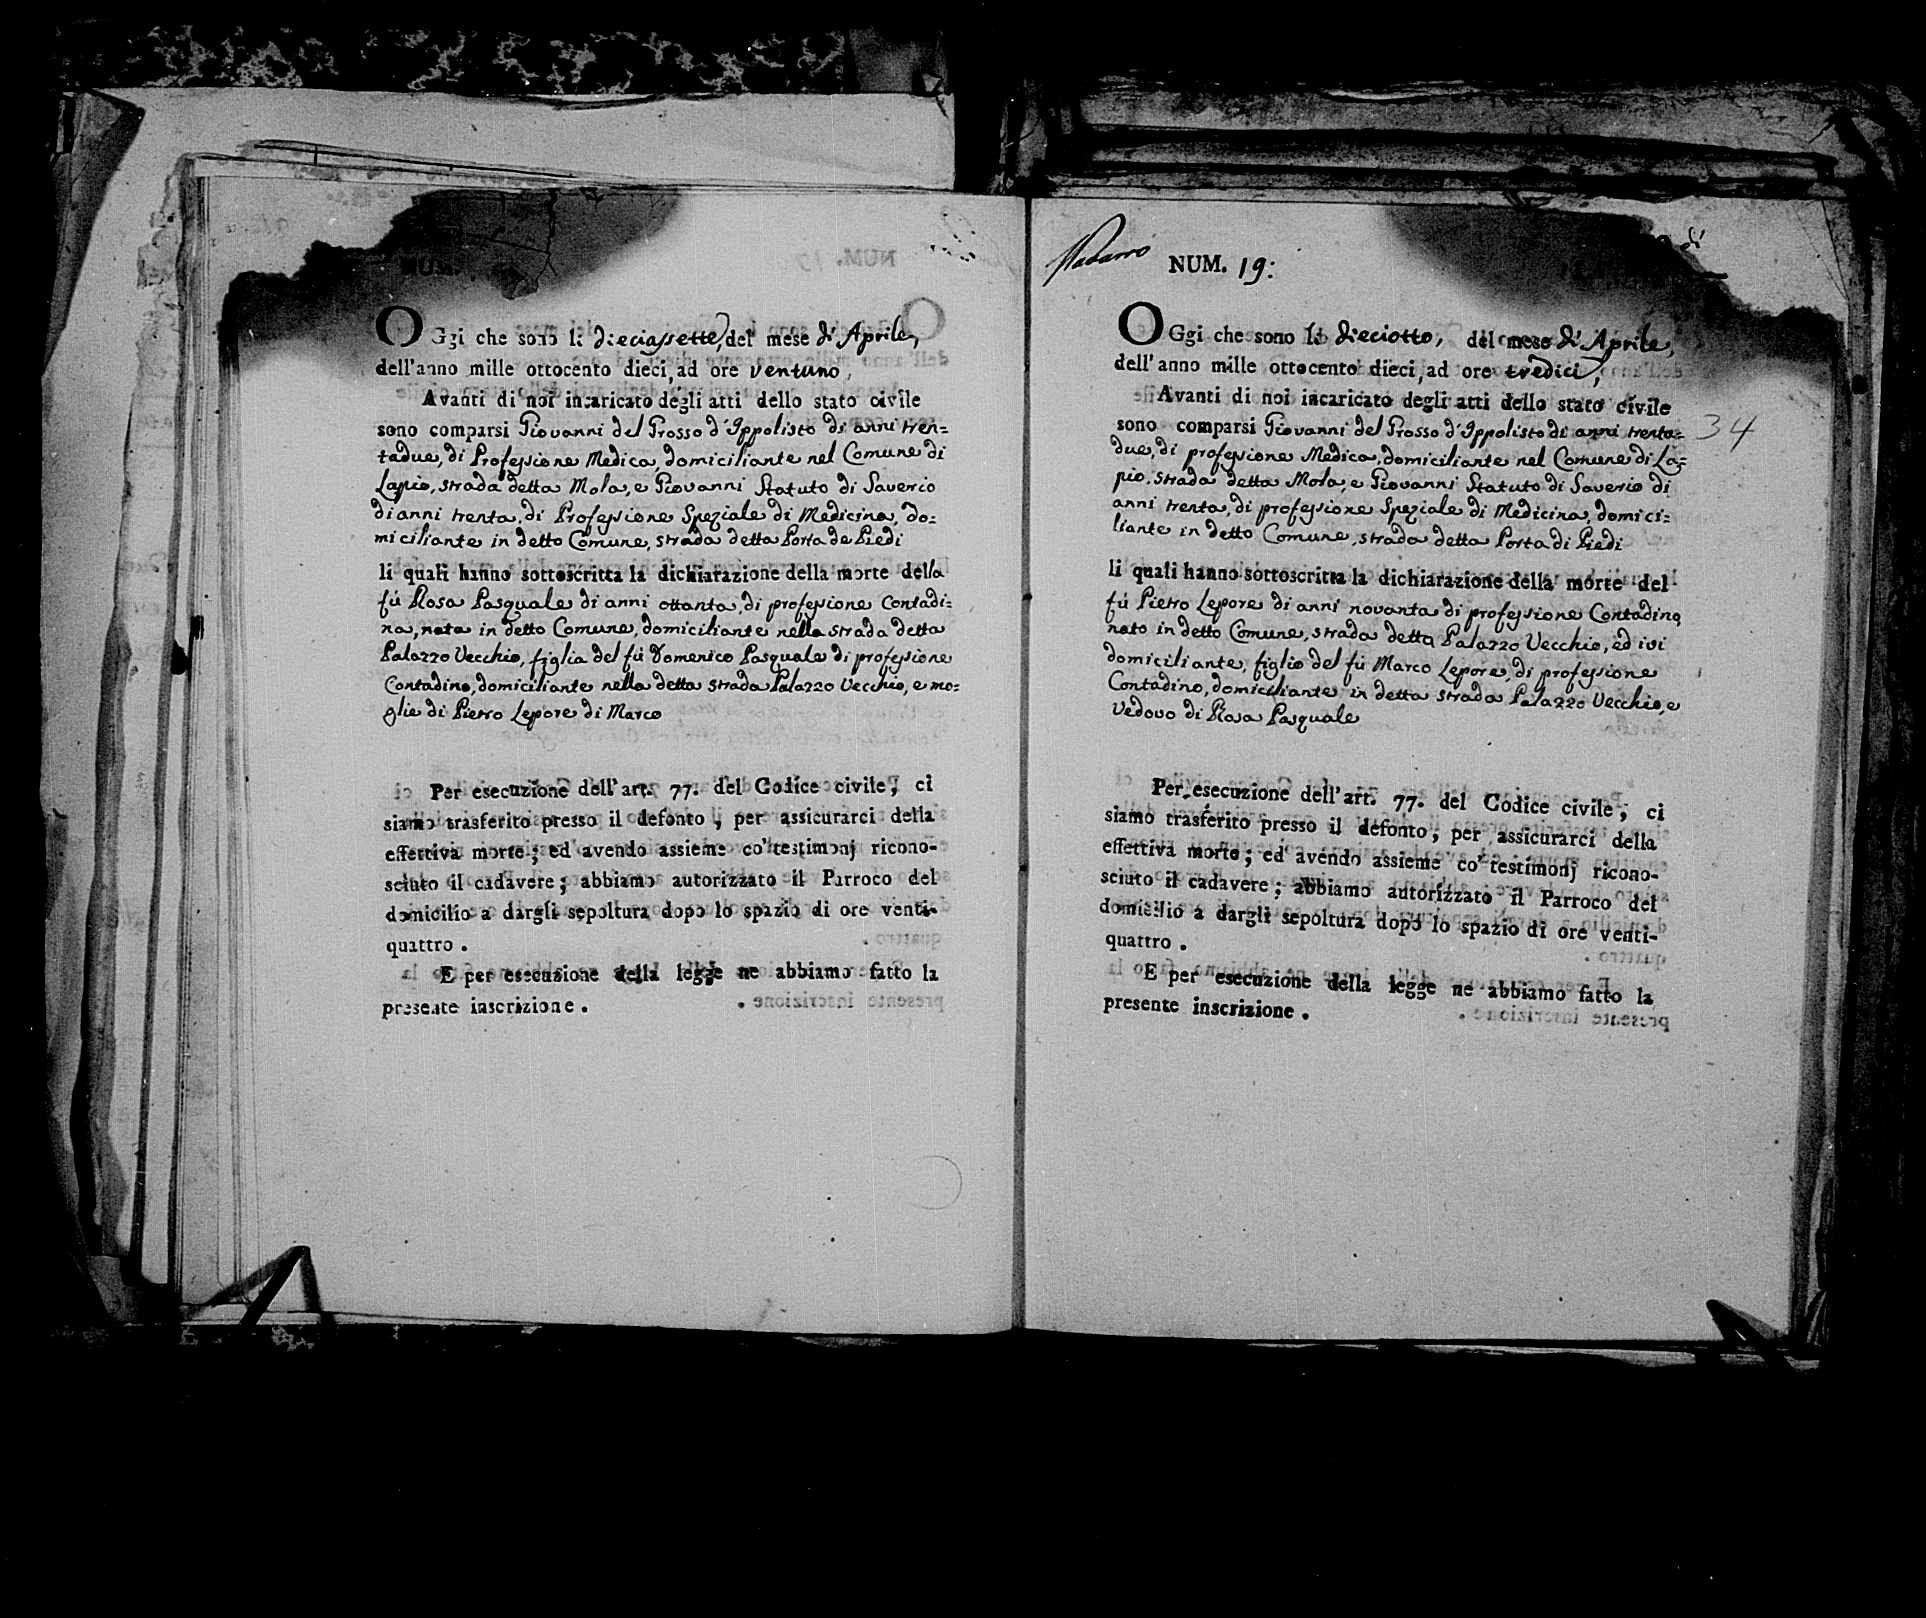 OGgi che sono li dieciassette, del mese di Aprile,
dell'anno mille ottocento dieci, ad ore ventuno,
Avanti di noi incaricato degli atti dello stato civile
sono comparsi Giovanni del Grosso d'Ippolisto di anni tren=
tadue, di Professione Medica, domiciliante nel Comune di
Lapio, strada detta Mola, e Giovanni Statuto di Saverio
di anni trenta, di Professione Speziale di Medicina, do=
miciliante in detto Comune, strada detta Porta de Piedi
li quali hanno sottoscritta la dichiarazione della morte della
fù Rosa Pasquale di anni ottanta, di professione Contadi=
na, nata in detto Comune, domiciliante nella strada detta
Palazzo Vecchio, figlia del fù Domenico Pasquale di professione
Contadino, domiciliante nella detta strada Palazzo Vecchio, e mo=
glie di Pietro Lepore di Marco
Per esecuzione dell'art. 77. del Codice civile, ci
siamo trasferito presso il defonto, per assicurarci della
effettiva morte; ed avendo assieme co'testimonj ricono-
sciuto il cadavere; abbiamo autorizzato il Parroco del
domicilio a dargli sepoltura dopo lo spazio di ore venti-
quattro.
E per esecuzione della legge ne abbiamo fatto la
presente inscrizione.
NUM. 19:
OGgi che sono li dieciotto, del mese di Aprile,
dell'anno mille ottocento dieci, ad ore tredici,
Avanti di noi incaricato degli atti dello stato civile
sono comparsi Giovanni del Grosso d'Ippolisto di anni trenta=
34
due, di professione Medica, domiciliante nel Comune di La=
pio, strada detta Mola, e Giovanni Statuto di Saverio di
anni trenta, di professione Speziale di Medicina, domici=
liante in detto Comune, strada detta Porta di Piedi
li quali hanno sottoscritta la dichiarazione della morte del
fù Pietro Lepore di anni novanta di professione Contadino,
nato in detto Comune, strada detta Palazzo Vecchio, ed ivi
domiciliante, figlio del fù Marco Lepore, di professione
Contadino, domiciliante in detta strada Palazzo Vecchio, e
Vedovo di Rosa Pasquale
Per esecuzione dell'art. 77. del Codice civile, ci
siamo trasferito presso il defonto, per assicurarci della
effettiva morte; ed avendo assieme co' testimonj ricono-
sciuto il cadavere; abbiamo autorizzato il Parroco del
domicilio a dargli sepoltura dopo lo spazio di ore venti-
quattro.
E per esecuzione della legge ne abbiamo fatto la
presente inscrizione.